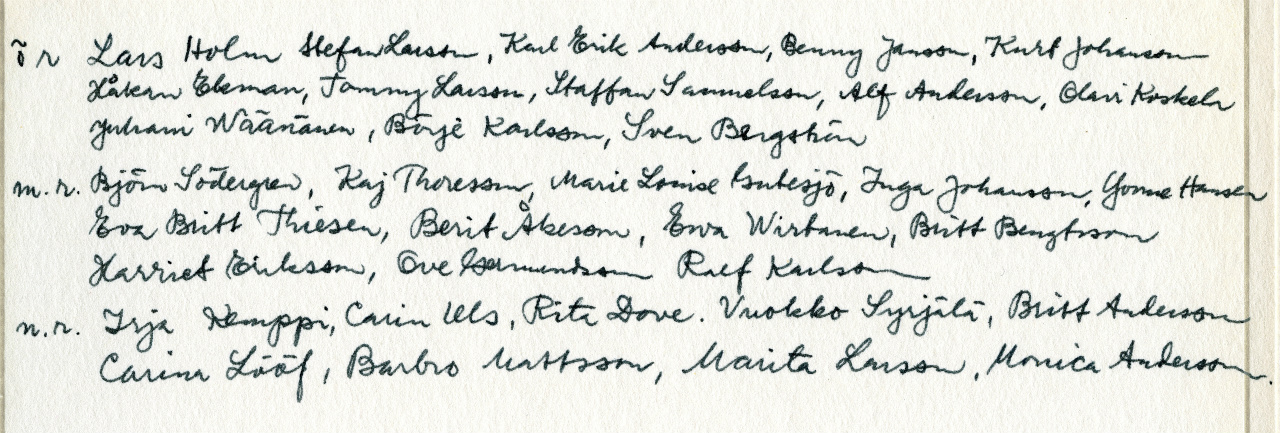 ö r Lars Holm Stefan Larsson, Karl Erik Anderson, Benny Janson, Kurt Johanson
Håkan Ekman, Tommy Larson, Staffan Samuelson, Alf Anderson, Olavi Koskela
Juhani Wäänänen, Börje Karlsson, Sven Bergström
m.r. Björn Södergren, Kaj Thoresson, Marie Louise Inga Johansson, Yvonne Hansen
Eva Britt Thiesen, Berit Åkeson, Ewa Wirtanen, Britt Bengtsson
Harriet Eriksson, Ove Germundsson Ralf Karlson
n.r. Irja Kemppi, Carin Uls, Rita Dove. Vuokko Syrjälä, Britt Anderson
Carina Lööf, Barbro Mattsson, Marita Larsson, Monica Anderson.